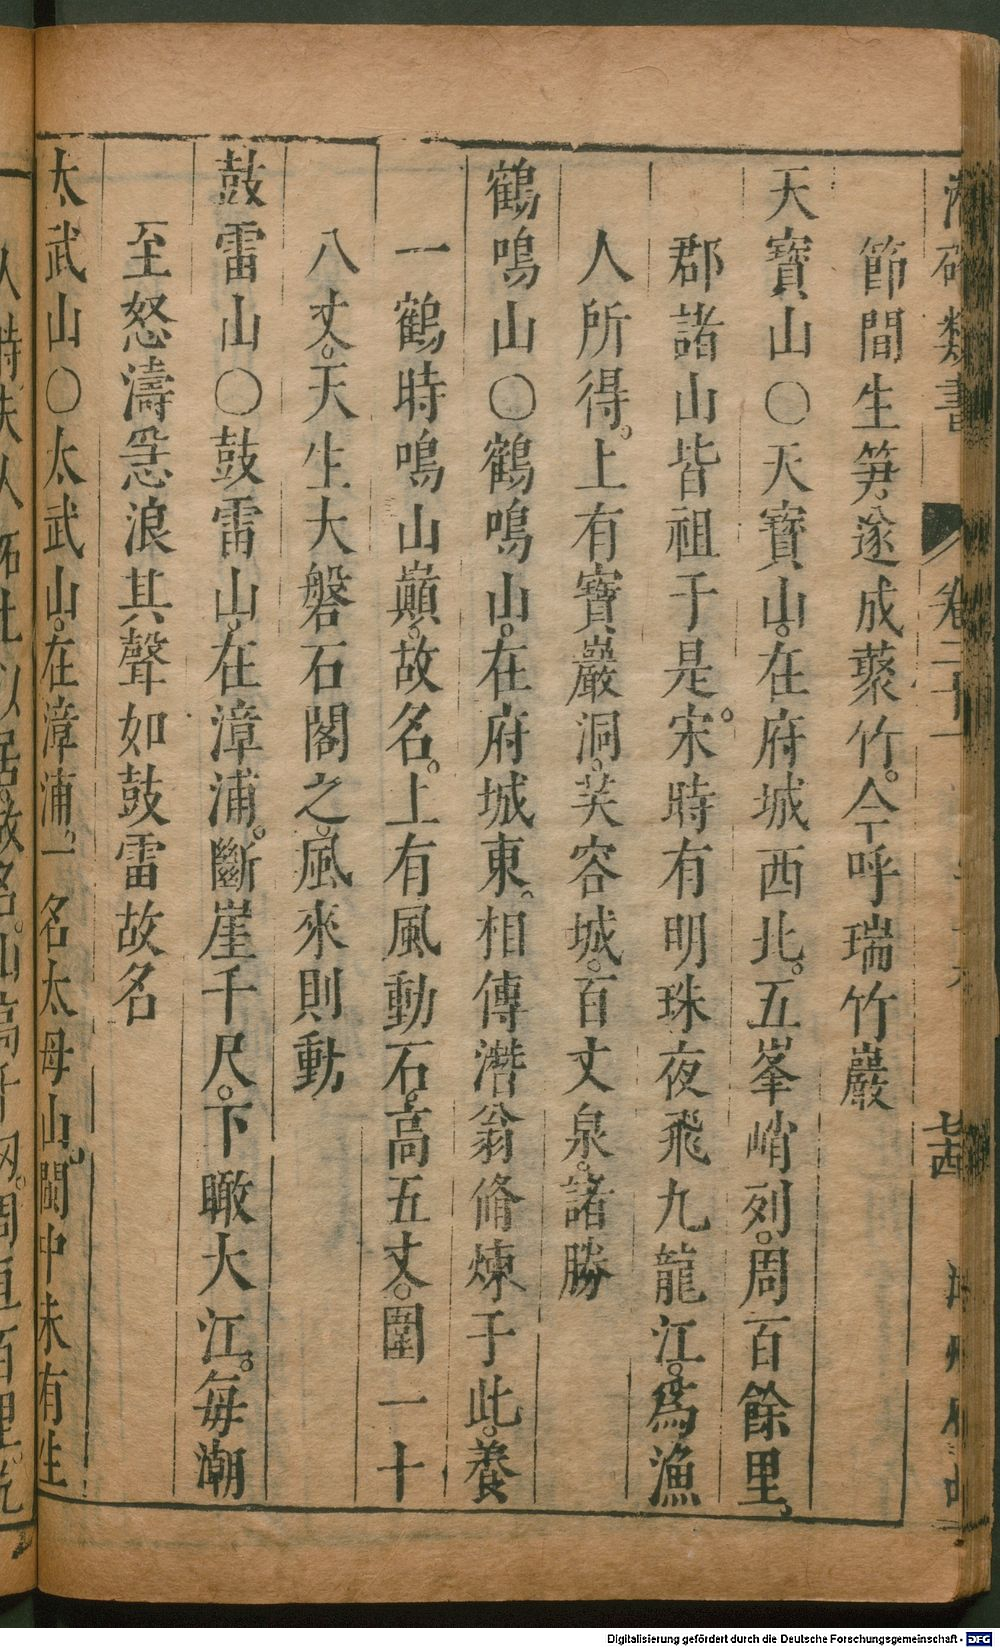 類書
卷二十一
節間生笋。遂成藂竹。今呼瑞竹巖
天寶山○天寶山。在府城西北。五峯峭列。周百餘里。
郡諸山皆祖于是。宋時有明珠夜飛九龍江。爲漁
人所得。上有寶巖洞。芙容城。百丈泉。諸勝
鶴鳴山○鶴鳴山。在府城東。相傳潛翁脩煉于此。養
一鶴時鳴山巔。故名。上有風動石。高五丈。圍一十
八丈。天生大磐石閣之。風來則動
鼓雷山○鼓雷山。在漳浦。斷崖千尺。下瞰大江。每潮
至怒濤急浪其聲如鼓雷故名
太武山○太武山。在漳浦。一名太母山。閩中未有生
以居。故名。山高千仞。周亘百里。
Digitalisierung gefördert durch die Deutsche Forschungsgemeinschaft - DFG